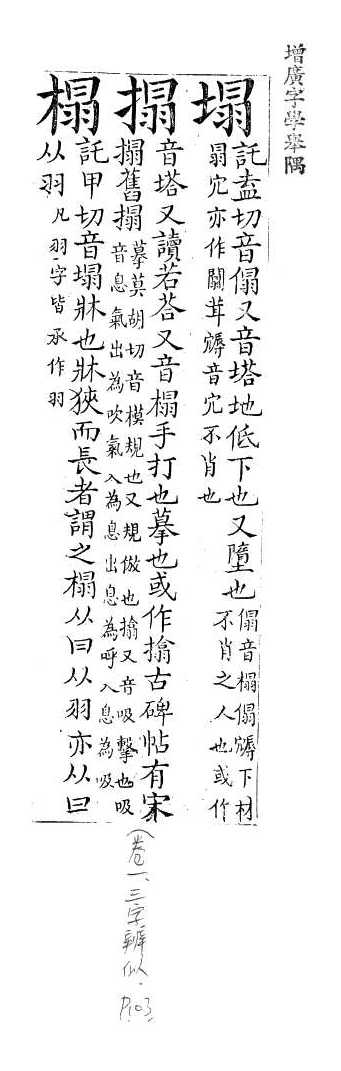 增廣字學舉隅
塌 託盍切音傝又音塔地低下也又墮也 傝音榻傝㒓下材
不肖之人也或作𦐇冗亦作闒茸㒓音冗不肖也
搨 音塔又讀若荅又音榻手打也摹也或作搚古碑帖有宋
搨舊搨 摹莫胡切音模規也又規倣也搚又音吸擊也吸
音息氣出為吹氣入為息出息為呼入息為吸
榻 託甲切音塌牀也牀狹而長者謂之榻从曰从羽亦从曰
从羽 凡羽字皆承作羽
(卷一、三字辨似. P103